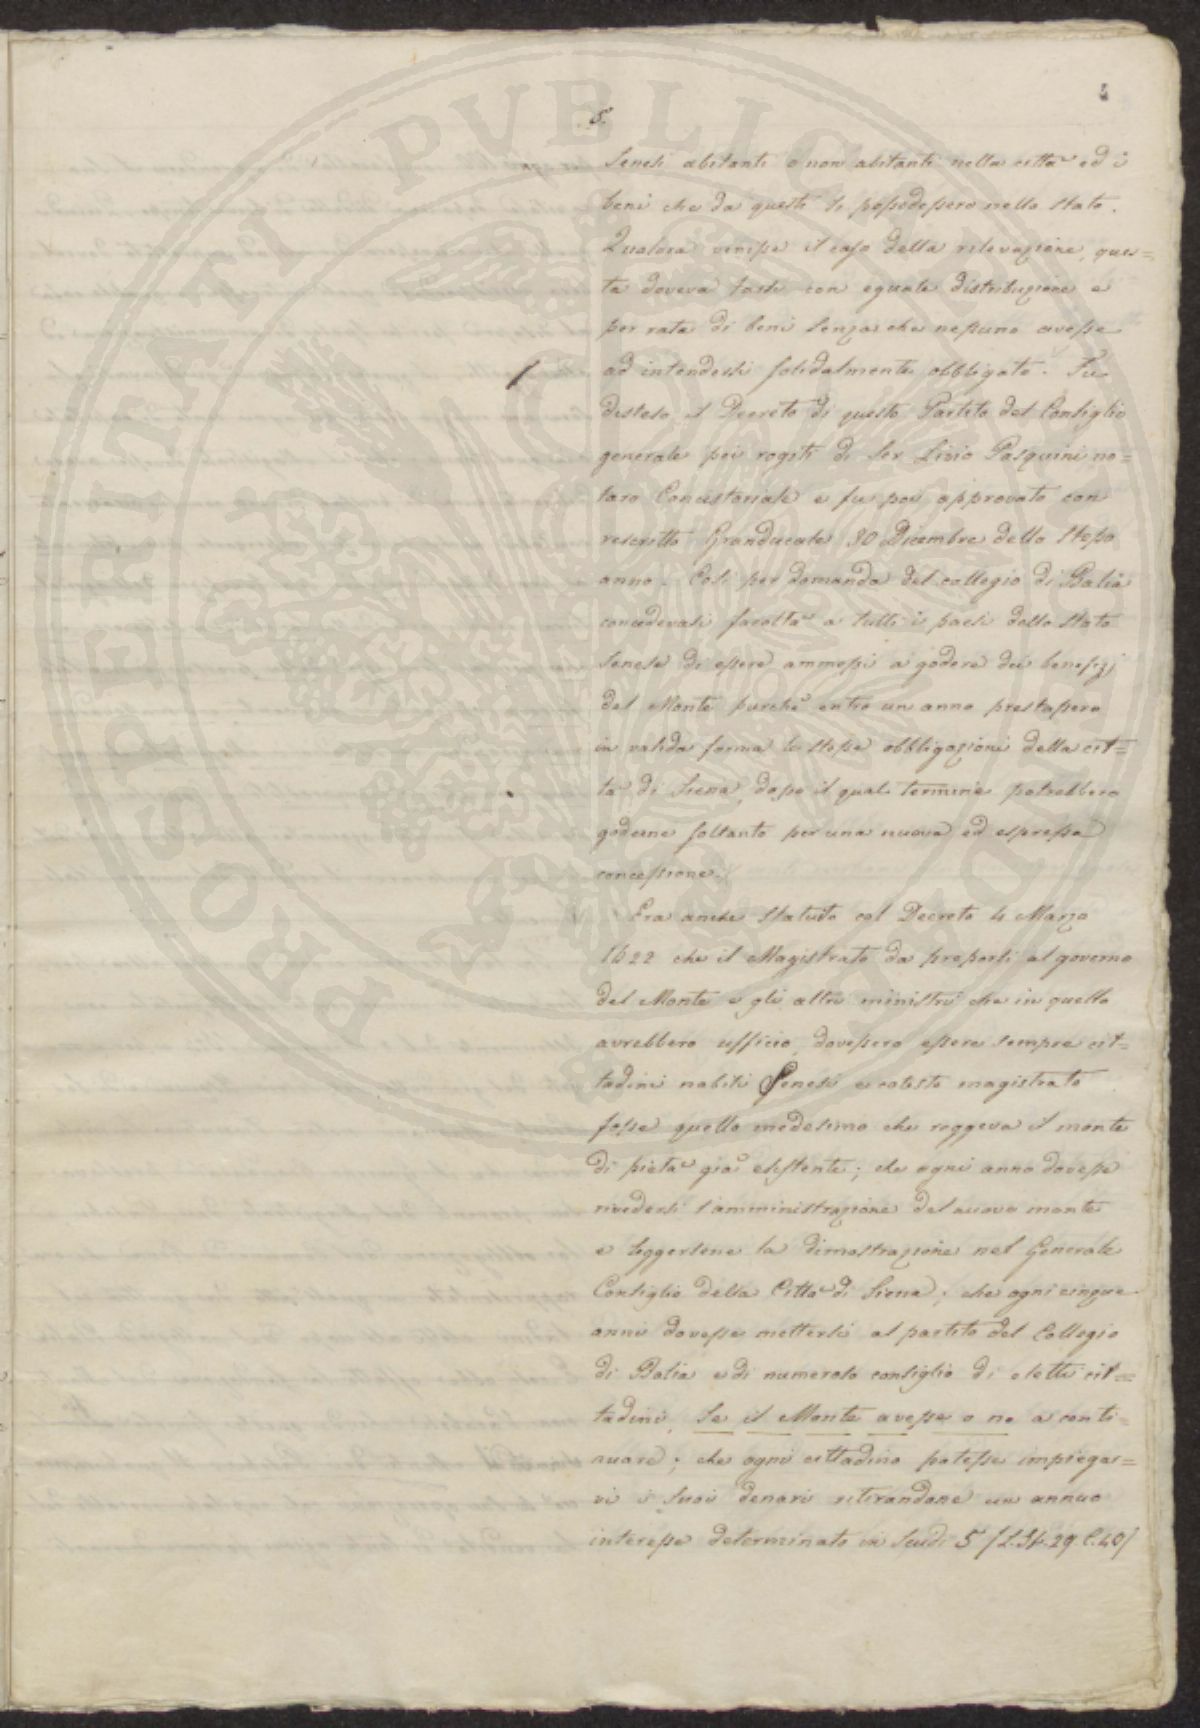 5.
Senesi abitanti o non abitanti nella città ed i
beni che da questi si possedessero nello Stato.
Qualora venisse il caso della rilevazione, ques=
ta doveva farsi con eguale distribuzione e
per rata di beni senza che nessuno avesse
ad intendersi solidalmente obbligato. Fu
disteso il Decreto di questo Partito del Consiglio
generale pei rogiti di Ser Livio Pasquini no=
taro Concistoriale e fu poi approvato con
rescritto Granducale 30 Dicembre dello stesso
anno. Così per domanda del collegio di Balia
concedevasi facoltà a tutti i paesi dello Stato
senese di essere ammessi a godere dei benefizj
del Monte purchè entro un anno prestassero
in valida forma le stesse obbligazioni della cit=
tà di Siena, dopo il qual termine potrebbero
goderne soltanto per una nuova ed espressa
concessione.
Era anche statuito col Decreto 4 Marzo
1622 che il Magistrato da preporsi al governo
del Monte e gli altri ministri che in quello
avrebbero ufficio, dovessero essere sempre cit=
tadini nobili Senesi e cotesto magistrato
fosse quello medesimo che reggeva il monte
di pietà già esistente; che ogni anno dovesse
rivedersi l'amministrazione del nuovo monte
e leggersene la dimostrazione nel Generale
Consiglio della Città di Siena; che ogni cinque
anni dovesse mettersi al partito del Collegio
di Balia e di numeroso consiglio di eletti cit=
tadini, se il Monte avesse o no a conti=
nuare; che ogni cittadino potesse impiegar=
vi i suoi denari ritirandone un annuo
interesse determinato in Scudi 5 (L. St. 29. C. 40)